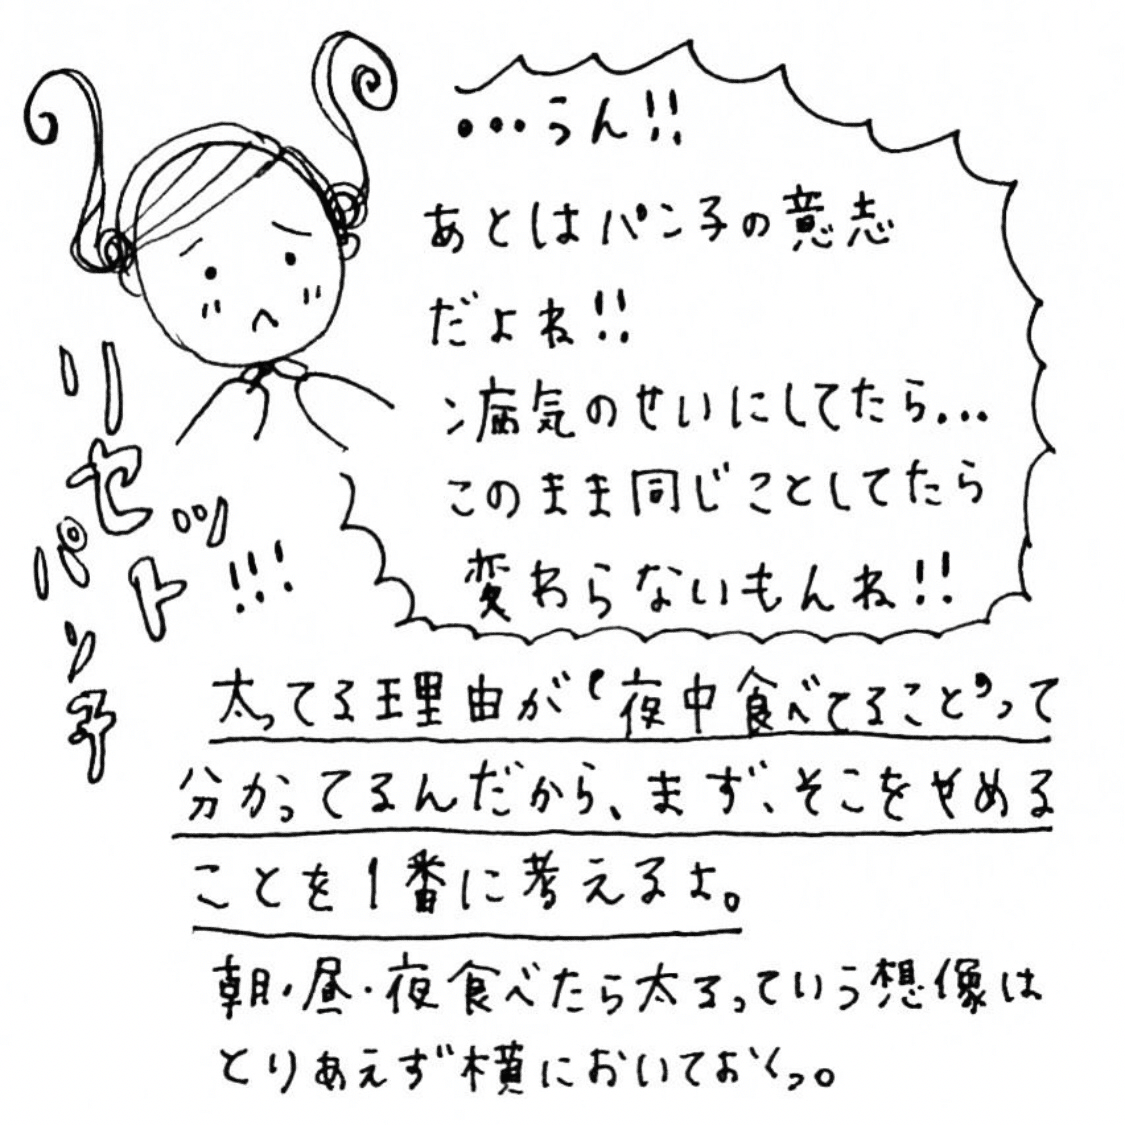 …うん!!
あとはパン子の意志
だよね!!
病気のせいにしてたら…
このまま同じことしてたら
変わらないもんね!!
リセット!!!
パン子
太ってる理由が“夜中食べてること”って
分かってるんだから、まず、そこをやめる
ことを1番に考えるよ。
朝・昼・夜食べたら太るっていう想像は
とりあえず横においておくっ。